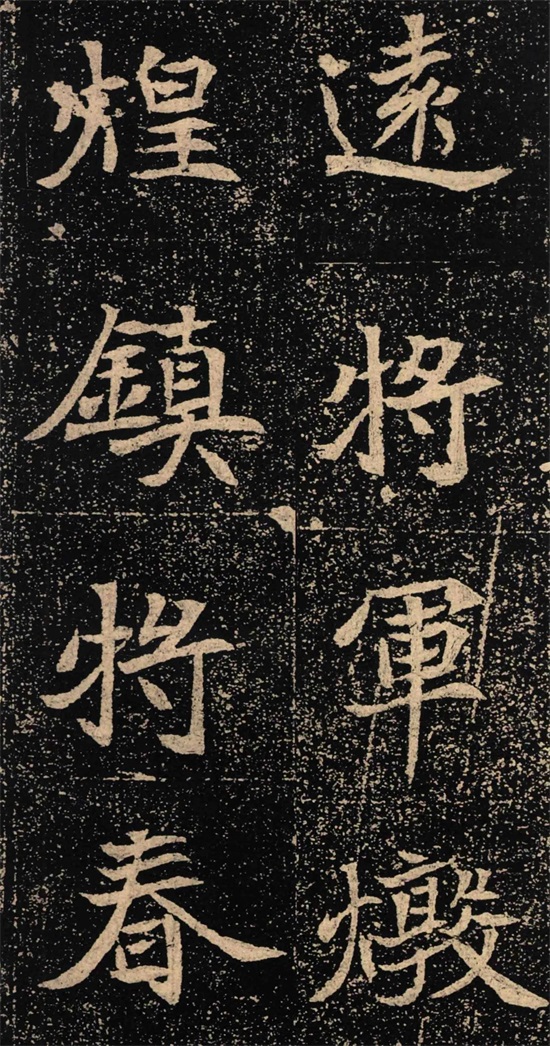 遠將軍燉
煌鎮將春